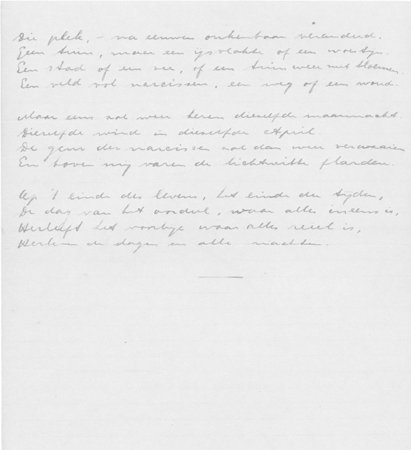 Die plek, – na eeuwen onkenbaar veranderd.
Geen tuin, maar een ijsvlakte of een woestijn.
Een stad of een zee, of een tuin weer met bloemen.
Een veld vol narcissen, een weg of een woud.

Maar eens zal weer keren dieselfde maannacht
Diezelfde wind in diezelfde April
De geur der narcissen zal dan weer verwaaien
En boven mij varen de lichtwitte flarden.

Op 't einde des levens, het einde der tijden,
De dag van het oordeel, waar alles ineens is,
Herleeft het voorbije waar alles reeds is,
de dagen en alle nachten.